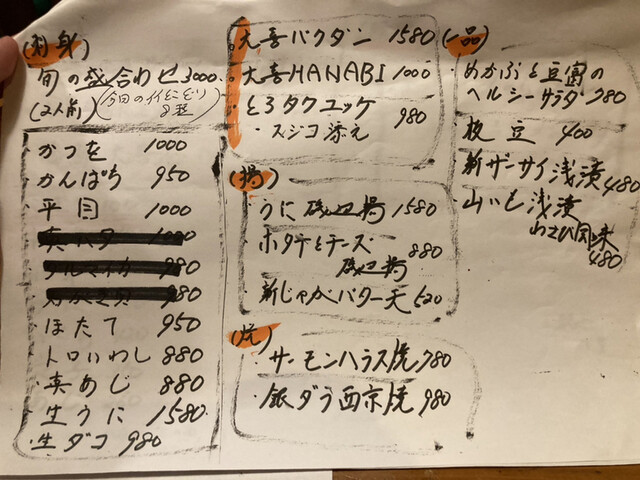 (刺身)
旬の盛合わせ3000.
(2人前)(今日のイイとこどり
8種)
・かつを 1000
・かんぱち 950
・平目 1000
・ほたて 950
・トロいわし 880
・真あじ 880
・生うに 1580.
・生ダコ 980
・大喜バクダン 1580
・大喜HANABI 1000
・とろタクユッケ
・スジコ添え 980
(揚)
・うに磯辺揚 1580
・ホタテとチーズ
磯辺揚 880
・新じゃがバター天 520
(焼)
・サーモンハラス焼 780
・銀ダラ西京焼 980
(一品)
・めかぶと豆腐の
ヘルシーサラダ 780
・枝豆 400
・新ザーサイ浅漬 480
・山いも浅漬
わさび風味 480